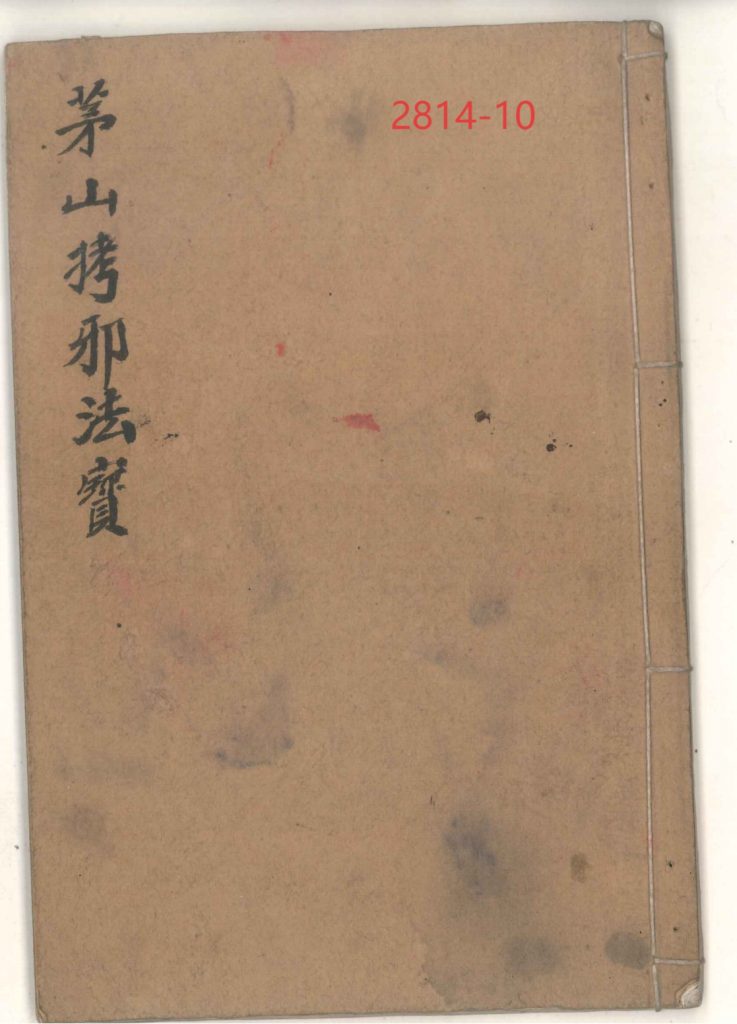 2814-10
茅山拷邪法寶